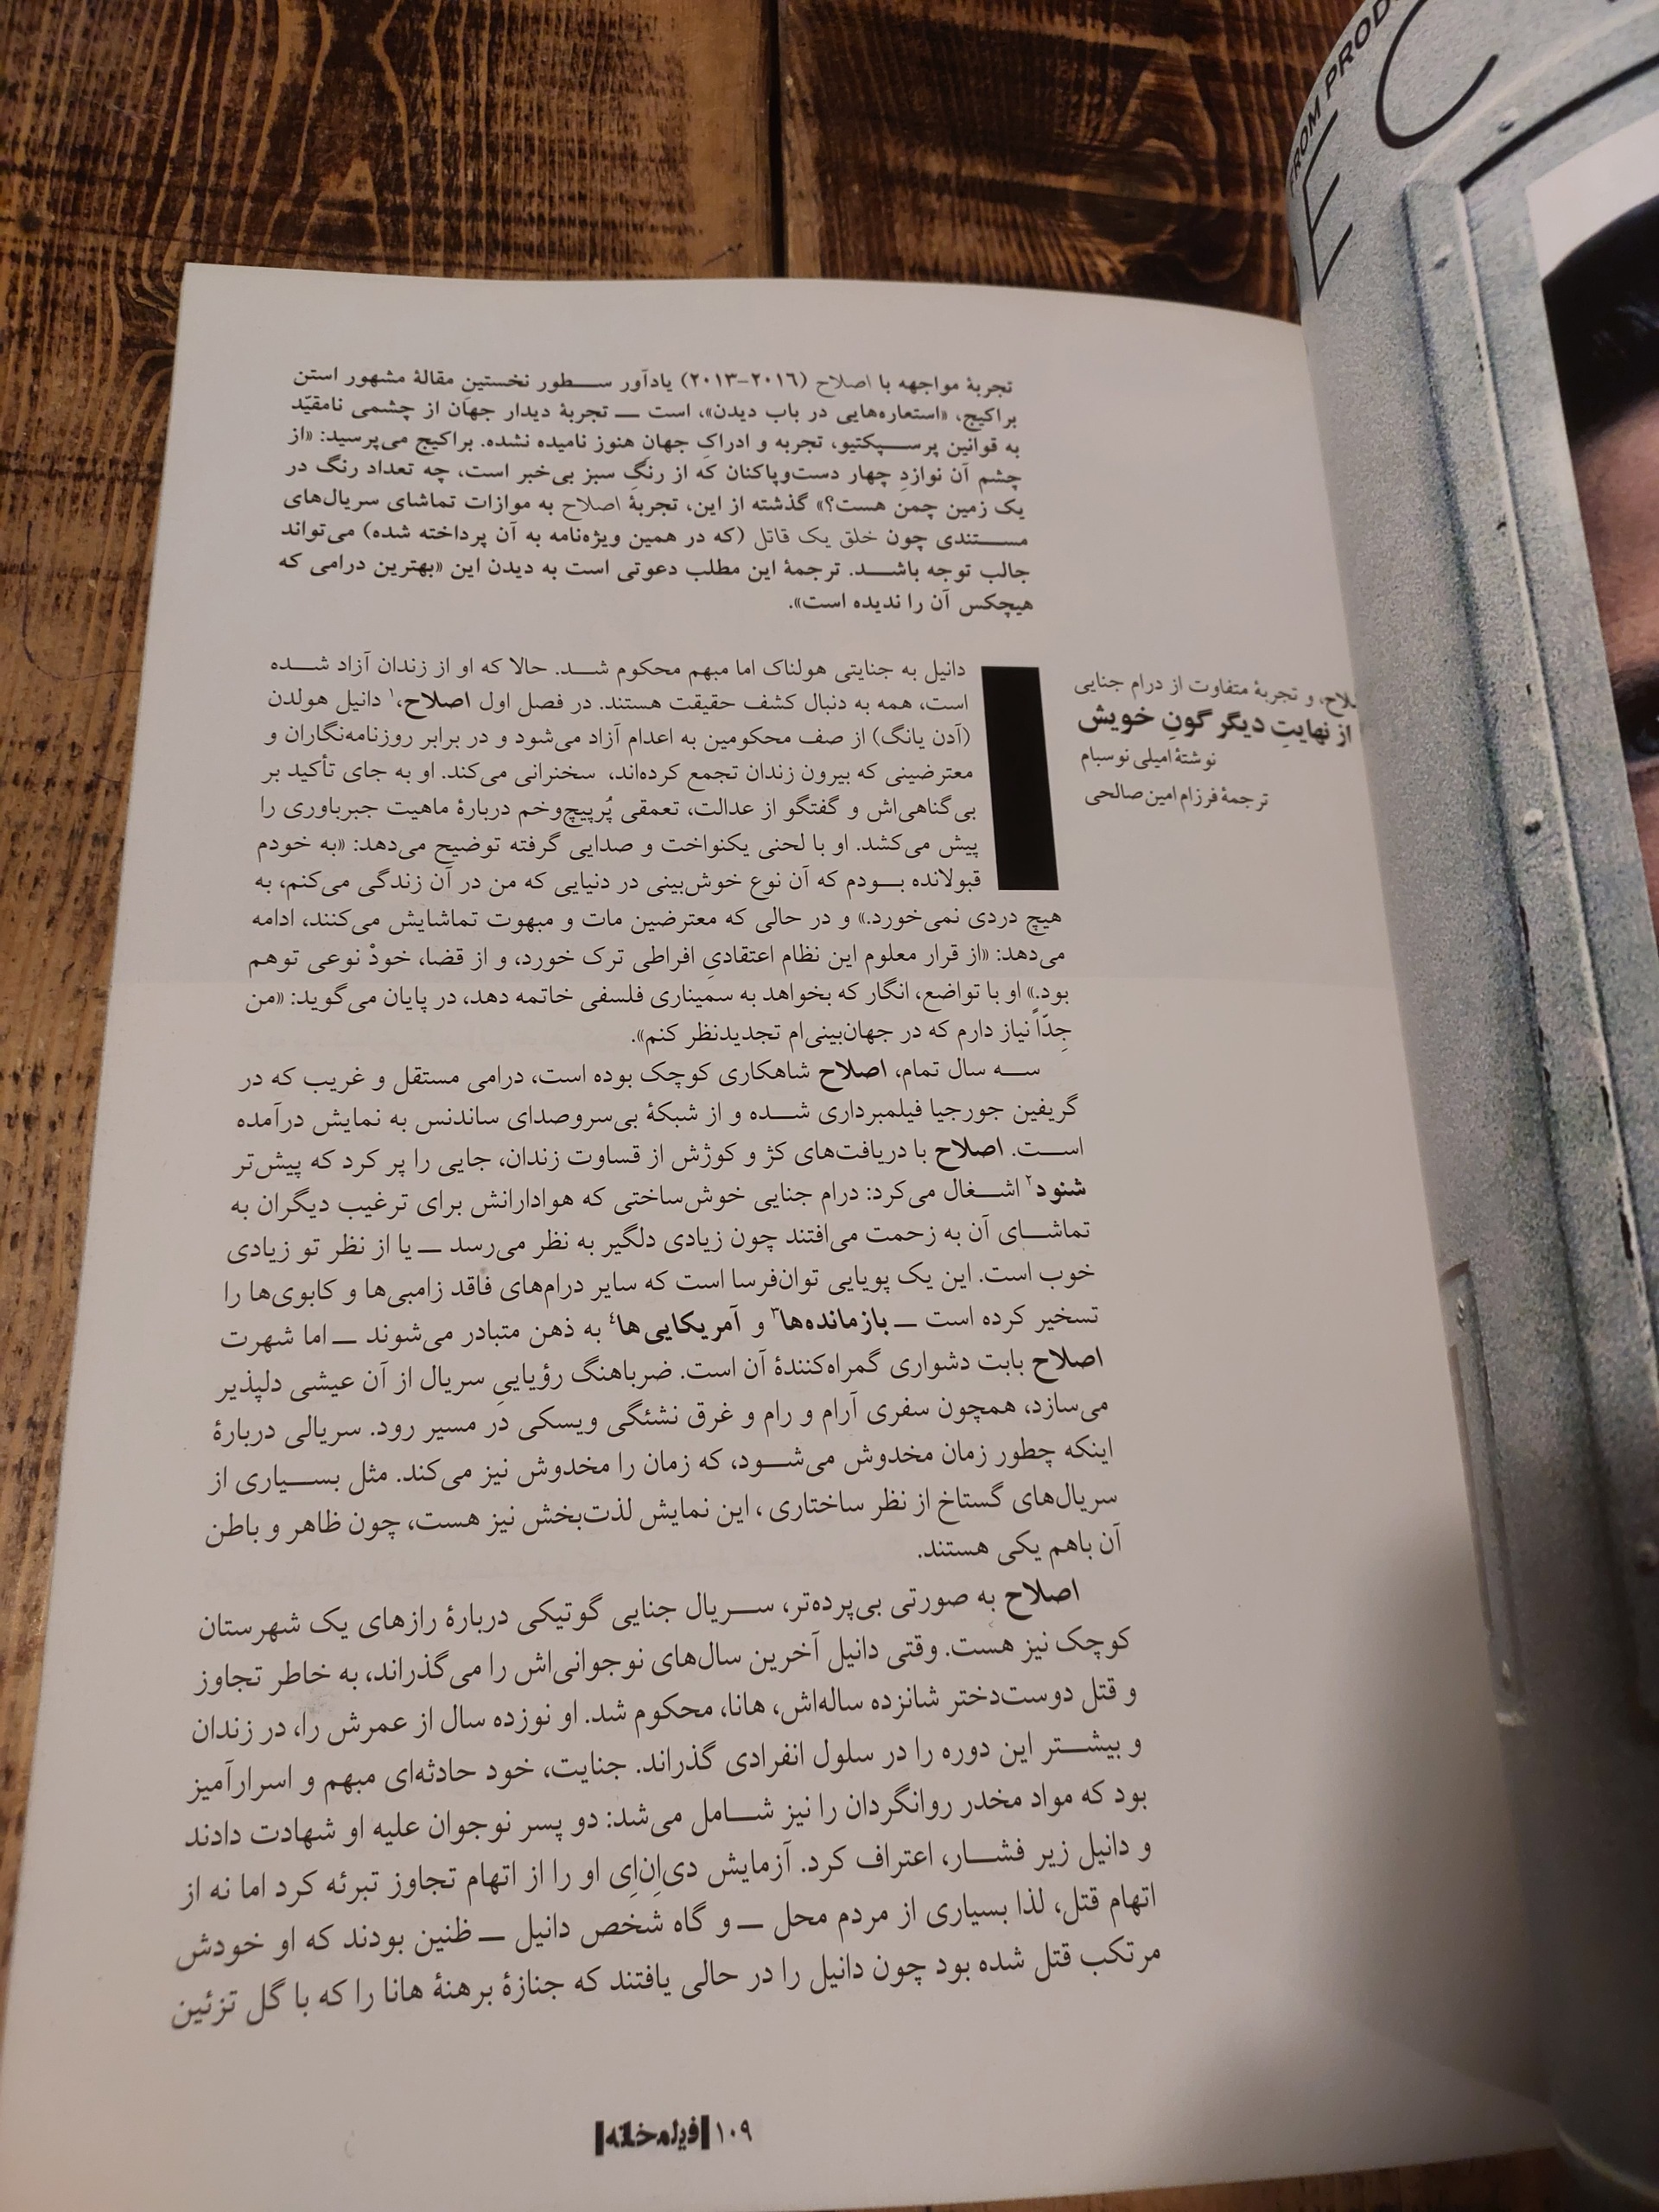 تجربهٔ مواجهه با اصلاح (۲۰۱۶-۲۰۱۳) یادآور سطور نخستینِ مقالهٔ مشهور استن
براکیج، «استعاره‌هایی در باب دیدن»، است — تجربهٔ دیدار جهان از چشمی نامقیّد
به قوانین پرسپکتیو، تجربه و ادراکِ جهانِ هنوز نامیده نشده. براکیج می‌پرسید: «از
چشم آن نوازدِ چهار دست‌وپاکنان که از رنگِ سبز بی‌خبر است، چه تعداد رنگ در
یک زمین چمن هست؟» گذشته از این، تجربهٔ اصلاح به موازات تماشای سریال‌های
مستندی چون خلق یک قاتل (که در همین ویژه‌نامه به آن پرداخته شده) می‌تواند
جالب توجه باشد. ترجمهٔ این مطلب دعوتی است به دیدن این «بهترین درامی که
هیچکس آن را ندیده است».
لاح، و تجربهٔ متفاوت از درام جنایی
از نهایتِ دیگر گونِ خویش
نوشتهٔ امیلی نوسبام
ترجمهٔ فرزام امین صالحی
دانیل به جنایتی هولناک اما مبهم محکوم شد. حالا که او از زندان آزاد شده
است، همه به دنبال کشف حقیقت هستند. در فصل اول اصلاح،۱ دانیل هولدن
(آدن یانگ) از صف محکومین به اعدام آزاد می‌شود و در برابر روزنامه‌نگاران و
معترضینی که بیرون زندان تجمع کرده‌اند، سخنرانی می‌کند. او به جای تأکید بر
بی‌گناهی‌اش و گفتگو از عدالت، تعمقی پُرپیچ‌وخم دربارهٔ ماهیت جبرباوری را
پیش می‌کشد. او با لحنی یکنواخت و صدایی گرفته توضیح می‌دهد: «به خودم
قبولانده بودم که آن نوع خوش‌بینی در دنیایی که من در آن زندگی می‌کنم، به
هیچ دردی نمی‌خورد.» و در حالی که معترضین مات و مبهوت تماشایش می‌کنند، ادامه
می‌دهد: «از قرار معلوم این نظام اعتقادیِ افراطی ترک خورد، و از قضا، خودْ نوعی توهم
بود.» او با تواضع، انگار که بخواهد به سمیناری فلسفی خاتمه دهد، در پایان می‌گوید: «من
جِدّاً نیاز دارم که در جهان‌بینی‌ام تجدیدنظر کنم».
سه سال تمام، اصلاح شاهکاری کوچک بوده است، درامی مستقل و غریب که در
گریفین جورجیا فیلمبرداری شده و از شبکهٔ بی‌سروصدای ساندنس به نمایش درآمده
است. اصلاح با دریافت‌های کژ و کوژش از قساوت زندان، جایی را پر کرد که پیش‌تر
شنود۲ اشغال می‌کرد: درام جنایی خوش‌ساختی که هوادارانش برای ترغیب دیگران به
تماشای آن به زحمت می‌افتند چون زیادی دلگیر به نظر می‌رسد — یا از نظر تو زیادی
خوب است. این یک پویایی توان‌فرسا است که سایر درام‌های فاقد زامبی‌ها و کابوی‌ها را
تسخیر کرده است — بازمانده‌ها۳ و آمریکایی‌ها۴ به ذهن متبادر می‌شوند — اما شهرت
اصلاح بابت دشواری گمراه‌کنندهٔ آن است. ضرباهنگ رؤیاییِ سریال از آن عیشی دلپذیر
می‌سازد، همچون سفری آرام و رام و غرق نشئگی ویسکی در مسیر رود. سریالی دربارهٔ
اینکه چطور زمان مخدوش می‌شود، که زمان را مخدوش نیز می‌کند. مثل بسیاری از
سریال‌های گستاخ از نظر ساختاری، این نمایش لذت‌بخش نیز هست، چون ظاهر و باطن
آن باهم یکی هستند.
اصلاح به صورتی بی‌پرده‌تر، سریال جنایی گوتیکی دربارهٔ رازهای یک شهرستان
کوچک نیز هست. وقتی دانیل آخرین سال‌های نوجوانی‌اش را می‌گذراند، به خاطر تجاوز
و قتل دوست‌دختر شانزده ساله‌اش، هانا، محکوم شد. او نوزده سال از عمرش را، در زندان
و بیشتر این دوره را در سلول انفرادی گذراند. جنایت، خود حادثه‌ای مبهم و اسرارآمیز
بود که مواد مخدر روانگردان را نیز شامل می‌شد: دو پسر نوجوان علیه او شهادت دادند
و دانیل زیر فشار، اعتراف کرد. آزمایش دی‌اِن‌اِی او را از اتهام تجاوز تبرئه کرد اما نه از
اتهام قتل، لذا بسیاری از مردم محل — و گاه شخص دانیل — ظنین بودند که او خودش
مرتکب قتل شده بود چون دانیل را در حالی یافتند که جنازهٔ برهنهٔ هانا را که با گل تزئین
۱۰۹ |فیلمخانه|
FROM PROD
E C